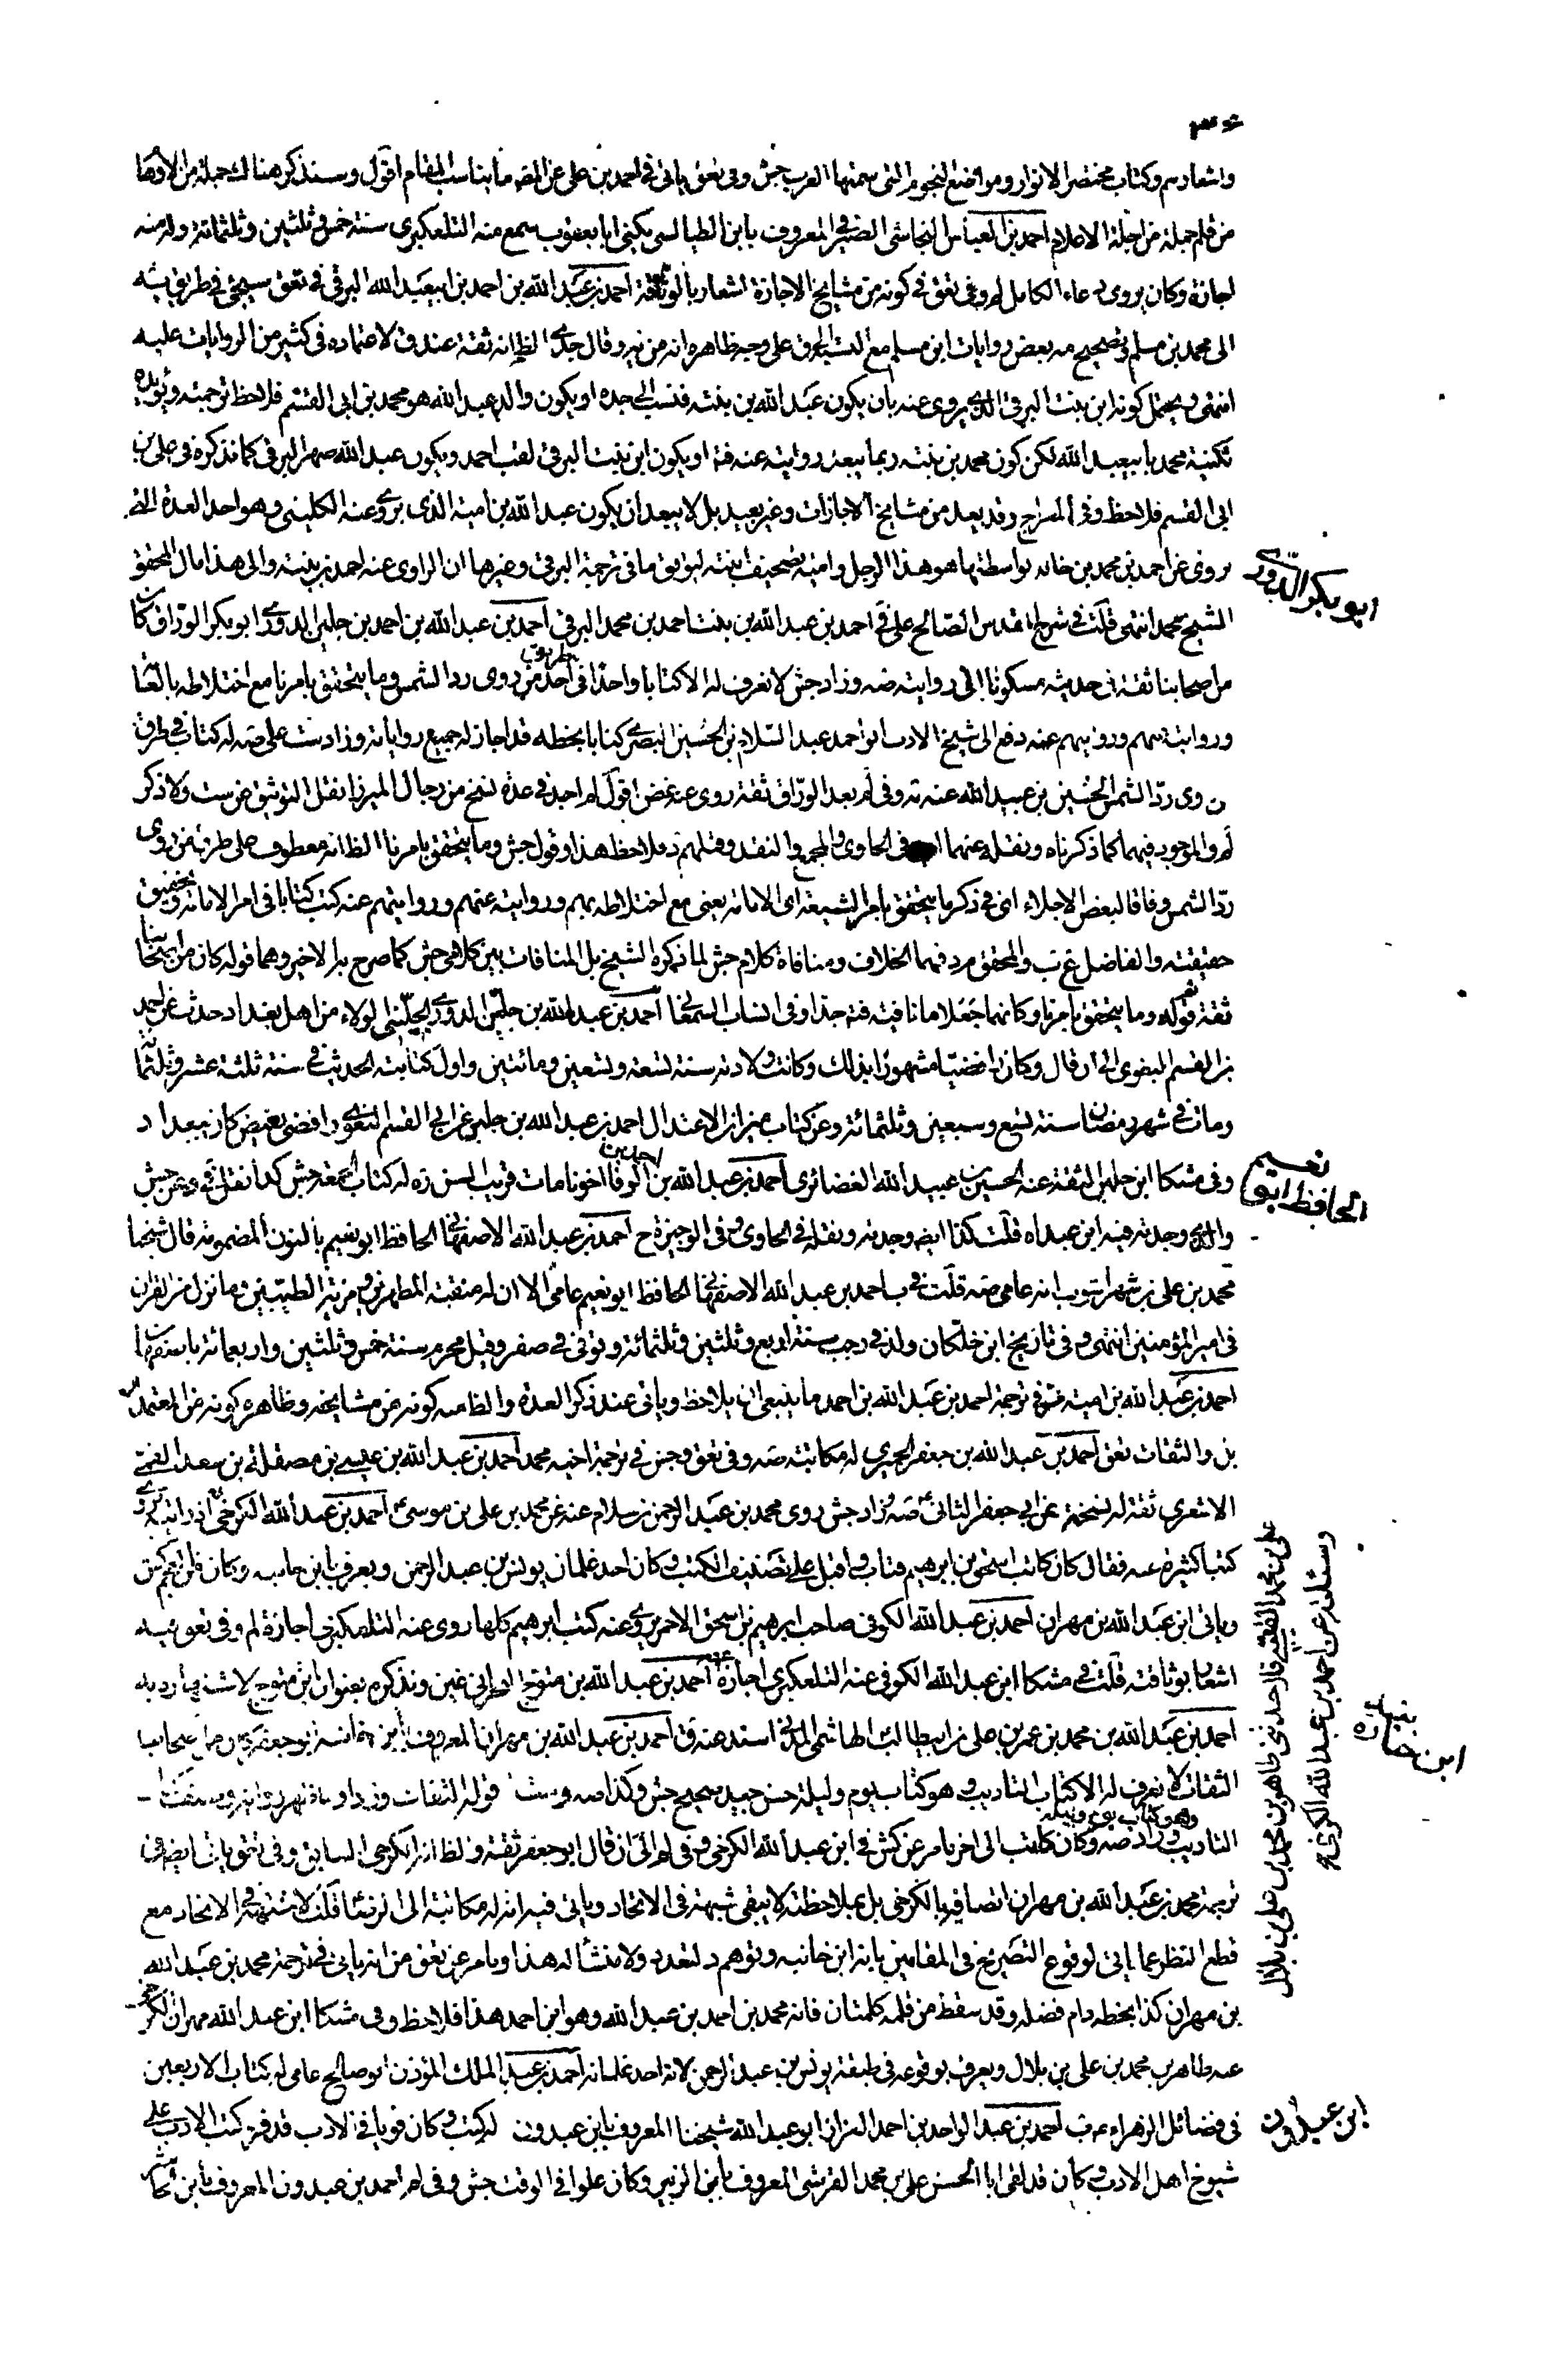 ۳۶
واشعارهم وكتاب مختصر الانوار ومواضع النجوم التى سمتها العرب جش وفى تعق ياتى فى احمد بن على عن المص ما يناسب المقام اقول وسنذكر هناك جملة من الاوها
من قلم جملة من اجلة الاعلام احمد بن العباس النجاشى الصيرفى المعروف بابن الطيالسى يكنى ابا يعقوب سمع منه التلعكبرى سنة خمس وثلثين وثلثمائة وله منه
اجازة وكان يروى دعاء الكامل لم وفى تعق فى كونه من مشايخ الاجازة اشعار بالوثاقة احمد بن عبد الله بن احمد بن ابيعبد الله البرقى فى تعق سيجئ فى طريق يشه
الى محمد بن مسلم وتصحيح مه بعض روايات ابن مسلم مع الست الحرق على وجه ظاهره انه من يه وقال جدى الظ انه ثقة عند ق لاعتماده فى كثير من الروايات عليه
انتهى ويحتمل كونه ابن بنت البرقى الذى يروى عنه بان يكون عبد الله بن بنته فنسب الى جده او يكون والد عبد الله هو محمد بن ابى القسم فلاحظ ترجمته ويؤيده
تكنية محمد بابيعبد الله لكن كون محمد بن بنته ربما يبعد روايته عنه فت او يكون ابن بنت البرقى لقب احمد ويكون عبد الله صهر البرقى كما نذكره فى على بن
ابى القسم فلاحظ وفى المعراج وقد يعد من مشايخ الاجازات وغير بعيد بل لا يبعد ان يكون عبد الله بن امية الذى يروى عنه الكلينى وهو احد العدة التى
يروى عن احمد بن محمد بن خالد بواسطتها هو هذا الرجل وامية تصحيف ابنته ليوافق ما فى ترجمة البرقى وغيرها ان الراوى عنه احمد بن بنته والى هذا مال المحقق
ابو بكر الدورى
الشيخ محمد انتهى قلت فى شرح المقدس الصالح على فى احمد بن عبد الله بن بنت احمد بن محمد البرقى احمد بن عبد الله بن احمد بن جلين الدورى ابو بكر الوراق كان
من اصحابنا ثقة فى حديثه مسكونا الى روايته صه وزاد جش لا نعرف له الا كتابا واحدا فى طرق من روى رد الشمس وما يتحقق بامرنا مع اختلاطه بالعامة
وروايته عنهم وروايتهم عنه دفع الى شيخ الادب ابو احمد عبد السلام بن الحسين البصرى كتابا بخطه قد اجاز له جميع رواياته وزاد ست على صه له كتاب فى طرق
من روى رد الشمس الحسين بن عبيد الله عنه به وفى لم بعد الوراق ثقة روى عنه غض اقول لم اجد فى عدة نسخ من رجال الميرزا نقل التوثيق عن ست ولا ذكر
لم والموجود فيهما كما ذكرناه ونقله عنهما فى الحاوى والمجمع والنقد وقبلهم د فلاحظ هذا وقول جش وما يتحقق بامرنا الظ انه معطوف على طرق من روى
رد الشمس وفاقا لبعض الاجلاء اى فى ذكر ما يتحقق بامر الشيعة اى الامامة يعنى مع اختلاطه بهم وروايته عنهم وروايتهم عنه كتب كتابا فى امر الامامة وتحقيق
حقيقته والفاضل ع ب والمحقق مرد فهما الخلاف ومنافاة كلام جش لما ذكره الشيخ بل المنافات بين كلامى جش كما صرح به الاخير وهما قوله كان من اصحابنا
ثقة وقوله وما يتحقق بامرنا وكانهما جعلا ما نافية فت جدا وفى انساب السمعانى احمد بن عبد الله بن جلين الدورى الجلينى الولاء من اهل بغداد حدث عن احمد
بن القسم البغوى الى ان قال وكان رافضيا مشهورا بذلك وكانت ولادته سنة تسعة وتسعين ومائتين واول كتابته الحديث فى سنة ثلثة عشر وثلثمائة
ومات فى شهر رمضان سنة تسع وسبعين وثلثمائة وعن كتاب ميزان الاعتدال احمد بن عبد الله بن جلين عن ابى القسم البغوى رافضى بغيض كان ببغداد
وفى مشكا ابن جلين الثقة عنه الحسين بن عبيد الله الغضائرى احمد بن عبد الله بن احمد بن الوفا اخونا مات قريب السن ره له كتاب الجمعة جش كذا نقل فى د عن جش
نعيم الحافظ ابو
والذى وجدته فيه ابن عبداه قلت كذا ايضا وجدته ونقله فى الحاوى وفى الوجيزة ح احمد بن عبد الله الاصفهانى الحافظ ابو نعيم بالنون المضمومة قال شيخنا
محمد بن على بن شهراشوب انه عامى صه قلت فى ب احمد بن عبد الله الاصفهانى الحافظ ابو نعيم عامى الا ان له منقبة المطهرين ومرتبة الطيبين وما نزل من القران
فى امير المؤمنين انتهى وفى تاريخ ابن خلكان ولد فى رجب سنة اربع وثلثين وثلثمائة وتوفى فى صفر وقيل محرم سنة خمس وثلثين واربعمائة باصفهان
احمد بن عبد الله بن امية مر فى ترجمة احمد بن عبد الله بن احمد ما ينبغى ان يلاحظ وياتى عند ذكر العدة والظاهر كونه من مشايخه وظاهره كونه من المعتمدين
بن والثقات تعق احمد بن عبد الله بن جعفر الحميرى له مكاتبة صه وفى تعق وجش فى ترجمة اخيه محمد احمد بن عبد الله بن عيسى بن مصقلة بن سعد القمى
الاشعرى ثقة له نسخة عن ابى جعفر الثانى ع صه وزاد جش روى محمد بن عبد الرحمن بن سلام عنه عن محمد بن على بن موسى ع احمد بن عبد الله الكرخى
كتبا كثيرة عنه فقال كان كاتب اسحق بن ابرهيم فتاب واقبل على تصنيف الكتب وكان احد غلمان يونس بن عبد الرحمن ويعرف بابن خانبه وكان من العجم كش
وياتى ابن عبد الله بن مهران احمد بن عبد الله الكوفى صاحب ابرهيم بن اسحق الاحمرى يروى عنه كتب ابرهيم كلها روى عنه التلعكبرى اجازة لم وفى تعق فيه
اشعار بوثاقته قلت فى مشكا ابن عبد الله الكوفى عنه التلعكبرى اجازة احمد بن عبد الله بن متوج البحرانى غير ونذكره بعنوان ابن متوج لاشتهاره به
احمد بن عبد الله بن محمد بن عمر بن على بن ابيطالب الهاشمى المدنى اسند عنه ق احمد بن عبد الله بن مهران المعروف بابن خانبه ابو جعفر كان من اصحابنا
ابن خانبه
الثقات لا نعرف له الا كتاب التاديب وهو كتاب يوم وليلة حسن جيد صحيح جش وكذا صه وست قوله الثقات
وهو كتاب يوم وليلة
التاديب وزاد صه وكان كاتب الى اخر ما مر عن كش فى ابن عبد الله الكرخى وفى لم الى ان قال ابو جعفر ثقة والظ انه الكرخى السابق وفى تعق ياتى ايضا فى
ترجمة محمد بن عبد الله بن مهران اتصافه بالكرخى بل بملاحظته لا يبقى شبهة فى الاتحاد وياتى فيه انه له مكاتبة الى الرضا ع قلت لا شبهة فى الاتحاد مع
قطع النظر عما ياتى لوقوع التصريح فى المقامين بانه ابن خانبه وتوهم التعدد ولا منشا له هذا وما مر عن تعق من انه ياتى فى ترجمة محمد بن عبد الله
بن مهران كذا بخطه دام فضله وقد سقط من قلمه كلمتان فانه محمد بن احمد بن عبد الله وهو ابن احمد هذا فلاحظ وفى مشكا ابن عبد الله مهران الكرخى
عنه طاهر بن محمد بن على بن بلال ويعرف بوقوعه فى طبقة يونس بن عبد الرحمن لانه احد غلمانه احمد بن عبد الملك المؤذن ابو صالح عامى له كتاب الاربعين
فى فضائل الزهراء ع ب احمد بن عبد الواحد بن احمد البزاز ابو عبد الله شيخنا المعروف بابن عبدون له كتب وكان قويا فى الادب قد قرء كتب الادب على
ابن عبدون
شيوخ اهل الادب وكان قد لقى ابا الحسن على بن محمد القرشى المعروف بابن الزبير وكان علوا فى الوقت جش وفى لم احمد بن عبدون المعروف بابن الحاشر
على بن محمد القتيبى قال حدثنى طاهر بن محمد بن على بن بلال
وسئلته عن احمد بن عبد الله الكرخى